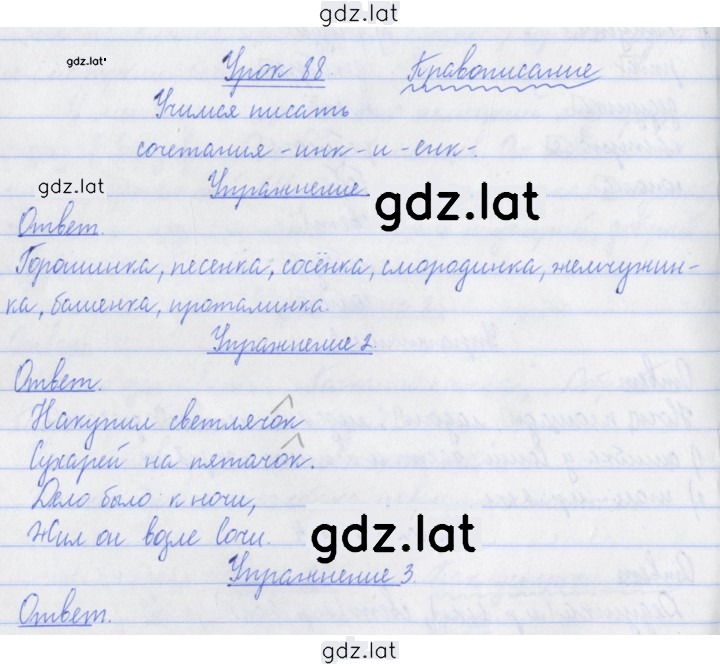 gdz.lat
gdz.lat
Урок 88. Правописание
Учимся писать
сочетания -инк- и -енк-.
gdz.lat
Упражнение.
gdz.lat
Ответ.
Горошинка, песенка, сосёнка, смородинка, жемчужин-
ка, башенка, проталинка.
Упражнение 2.
Ответ.
Накупил светлячок
Сухарей на пятачок.
Дело было к ночи,
Жил он возле Сочи.
gdz.lat
Упражнение 3.
Ответ.
gdz.lat